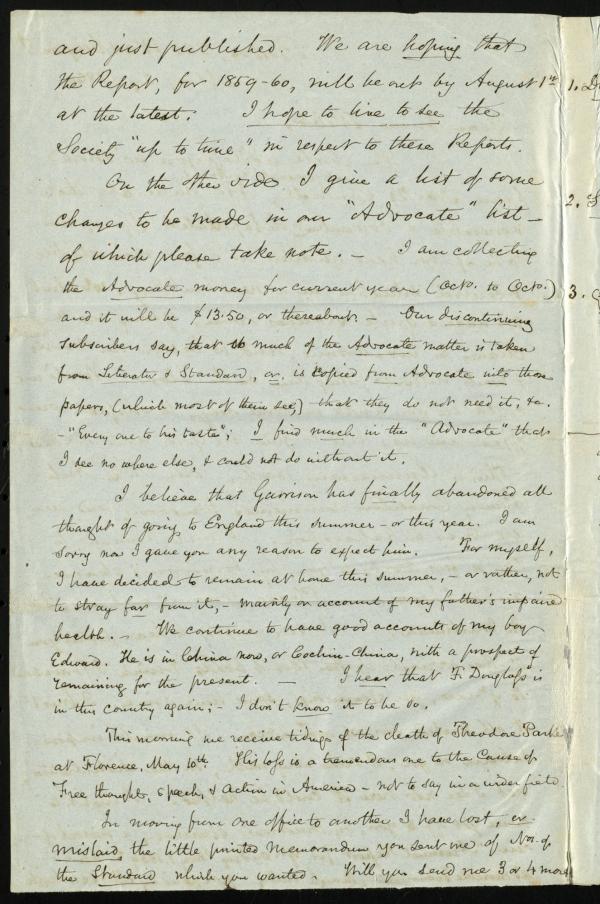 and just published. We are hoping that
the Report, for 1859-60, will be out by August 1st
at the latest. I hope to live to see the
Society "up to time" in respect to these Reports.
On the other side I give a list of some
changes to be made in our "Advocate" list –
of which please take note. – I am collecting
the Advocate money for current year (Octo. to Octo.)
and it will be $13.50, or thereabout. – Our discontinuing
subscribers say, that so much of the Advocate matter is taken
from Liberator & Standard, or is copied from Advocate into those
papers, (which most of them see,) that they do not need it, &c.
– "Every one to his taste"; I find much in the "Advocate" that
I see no where else, & could not do without it.
I believe that Garrison has finally abandoned all
thought of going to England this summer – or this year. I am
sorry now I gave you any reason to expect him. For myself,
I have decided to remain at home this summer, – or rather, not
to stray far from it, – mainly on account of my father's impaired
health. – We continue to have good accounts of my boy
Edward. He is in China now, or Cochin-China, with a prospect of
remaining for the present. – I hear that F. Douglass is
in this country again; – I don't know it to be so.
This morning we receive tidings of the death of Theodore Parker
at Florence, May 10th. His loss is a tremendous one to the Cause of
Free thought, speech, & action in America – not to say in a wider field.
In moving from one office to another I have lost, or
mislaid, the little printed memorandum you sent me of Nos. of
the Standard which you wanted. Will you send me 3 or 4 more
1.
2.
3.